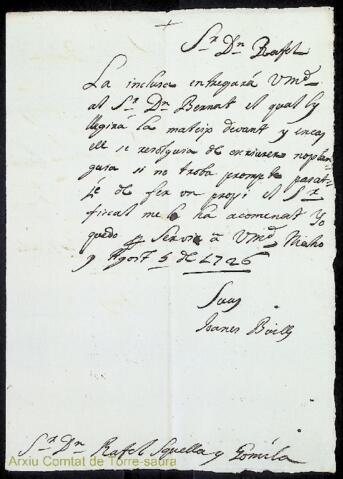 Sr. Dn. Rafel
La inclusa entregará Vmd.
al Sr. Dn. Bernat el qual ly
llegirá la mateix devant y encas
ell se resolguia de
guia si no troba prompte pasat-
ge de fer un propi el Sr.
fiscal me lo ha acomenat Yo
quedo pr. Servir á Vmd. Maho
y Agost 5 de 1726
Suus
Sr. Dn. Rafel Squella y Gomila
Arxiu Comtat de Torre-saura